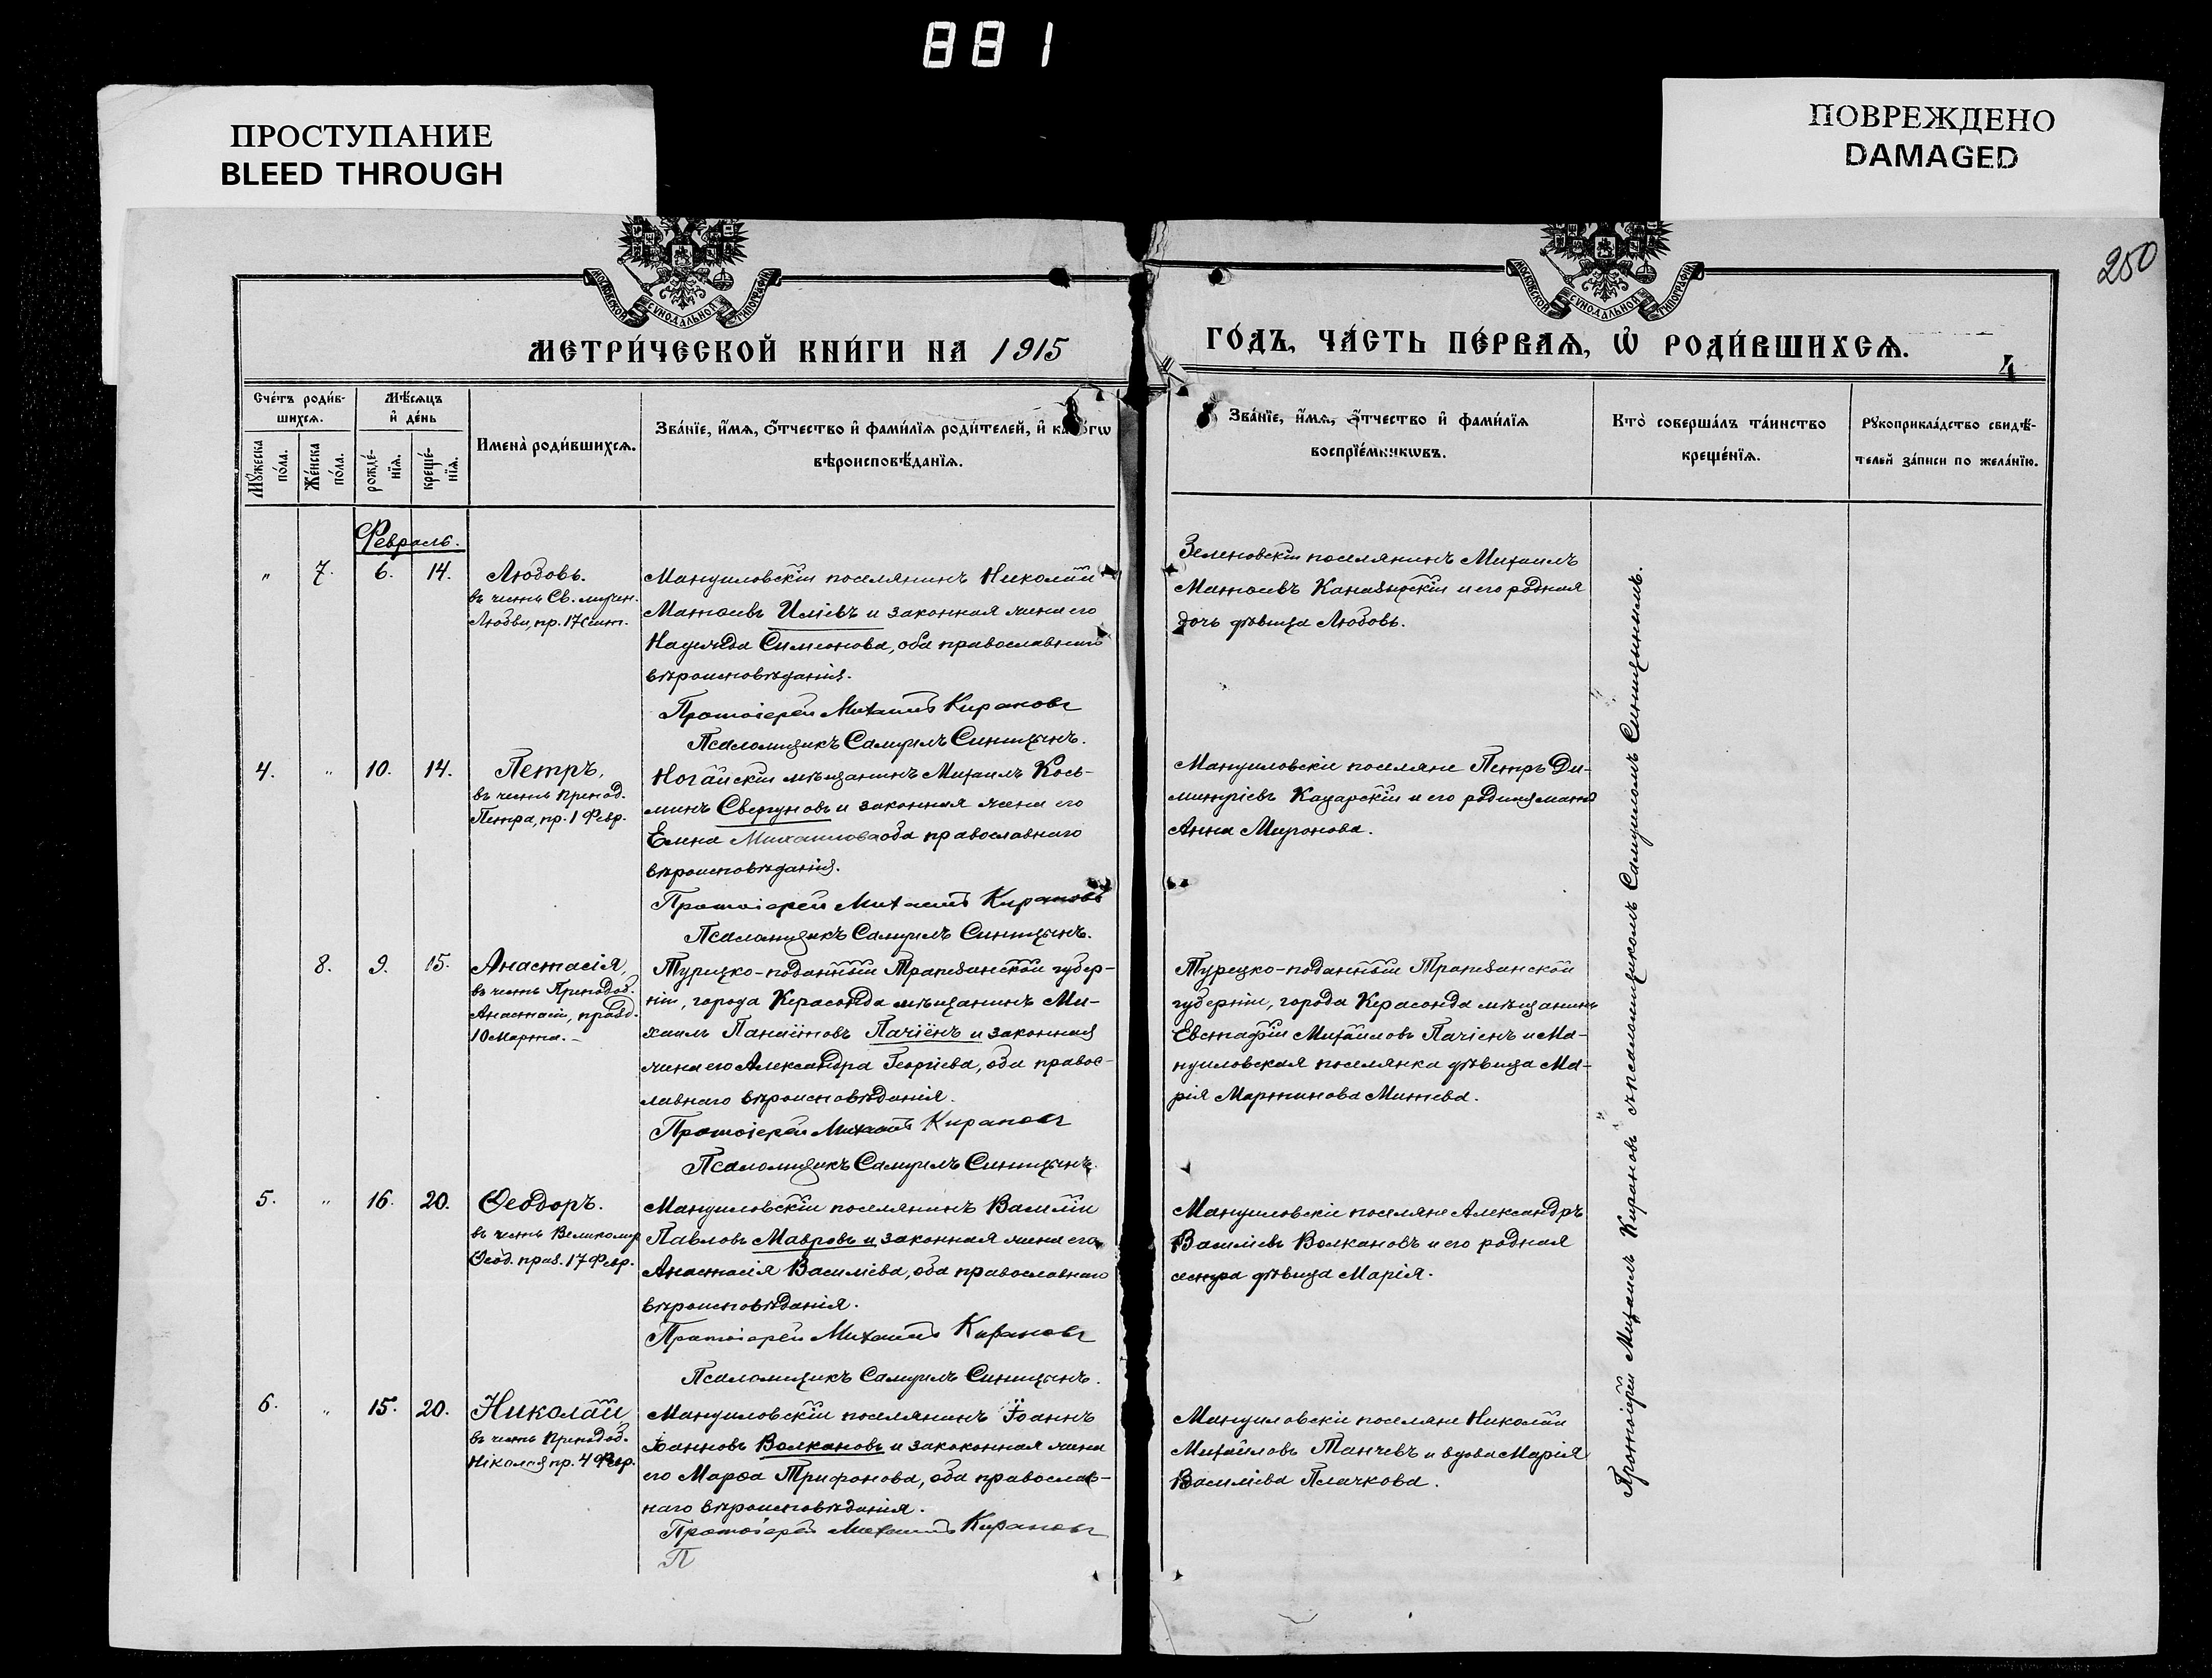 881
ПРОСТУПАНИЕ
BLEED THROUGH
ПОВРЕЖДЕНО
DAMAGED
250
МОСКОВСКОЙ СѴНОДАЛЬНОЙ ТИПОГРАФІИ
МОСКОВСКОЙ СѴНОДАЛЬНОЙ ТИПОГРАФІИ
МЕТРИ́ЧЕСКОЙ КНИ́ГИ НА 1915
ГО́ДЪ, ЧА́СТЬ ПЕ́РВАѦ, Ѡ҆ РОДИ́ВШИХСѦ.
4
Сче́тъ роди́в-
шихсѧ.
Мѣ́сѧцъ
и҆ де́нь
Мꙋ́жеска
по́ла.
Же́нска
по́ла.
рожде́-
нїѧ.
креще́-
нїѧ.
Имена̀ роди́вшихсѧ.
Зва́нїе, и҆́мѧ, ѻ҆́тчество и҆ фами́лїѧ роди́телей, и҆ как
вѣроисповѣ́данїѧ.
Зва́нїе, и҆́мѧ, ѻ҆́тчество и҆ фами́лїѧ
воспрїе́мникѡвъ.
Кто̀ соверша́лъ та́инство
креще́нїѧ.
Рꙋкоприкла́дство свидѣ́-
телей за́писи по жела́нїю.
Февраль.
" 7. 6. 14. Любовь.
въ честь Св. мучен.
Любви, пр. 17 Сент.
Мануиловскій поселянинъ Николай
Матѳеевъ Иліевъ и законная жена его
Надежда Симеонова, оба православнаго
вѣроисповѣданія.
Протоіерей Михаилъ Кирановъ
Псаломщикъ Самуилъ Синицынъ.
Зеленовскій поселянинъ Михаилъ
Матѳеевъ Канавырскій и его родная
дочь дѣвица Любовь.
4. " 10. 14. Петръ,
въ честь препод.
Петра, пр. 1 Февр.
Ногайскій мѣщанинъ Михаилъ Кось-
минъ Свергуновъ и законная жена его
Елена Михаилова оба православнаго
вѣроисповѣданія.
Протоіерей Михаилъ Кирановъ
Псаломщикъ Самуилъ Синицынъ.
Мануиловскіе поселяне Петръ Ди-
митріевъ Кацарскій и его родная мать
Анна Миронова.
8. 9. 15. Анастасія,
въ честь Преподоб.
Анастасіи, празд.
10 Марта.
Турецко-поданный Трапезанской губер-
ніи, города Керасонда мѣщанинъ Ми-
хаилъ Панаіотовъ Пачіенъ и законная
жена его Александра Георгіева, оба правос-
лавнаго вѣроисповѣданія.
Протоіерей Михаилъ Кирановъ
Псаломщикъ Самуилъ Синицынъ.
Турецко-поданный Трапезанской
губерніи, города Керасонда мѣщанинъ
Евстафій Михайловъ Пачіенъ и Ма-
нуиловская поселянка дѣвица Ма-
рія Мартинова Митева.
5. " 16. 20. Ѳеодоръ.
въ честь Великомуч
Ѳеод. праз. 17 Февр.
Мануиловскій поселянинъ Василій
Павловъ Мавровъ и законная жена его
Анастасія Василіева, оба православнаго
вѣроисповѣданія.
Протоіерей Михаилъ Кирановъ
Псаломщикъ Самуилъ Синицынъ.
Мануиловскіе поселяне Александръ
Василіевъ Волкановъ и его родная
сестра дѣвица Марія.
6. " 15. 20. Николай,
въ честь преподоб.
Николая пр. 4 Февр.
Мануиловскій поселянинъ Іоаннъ
Іоанновъ Волкановъ и закоконная жена
его Марѳа Трифонова, оба православ-
наго вѣроисповѣданія.
Протоіерей Михаилъ Кирановъ
П
Мануиловскіе поселяне Николай
Михайловъ Танчевъ и вдова Марія
Василіева Плачкова.
Протоіерей Михаилъ Кирановъ съ псаломщикомъ Самуиломъ Синицынымъ.